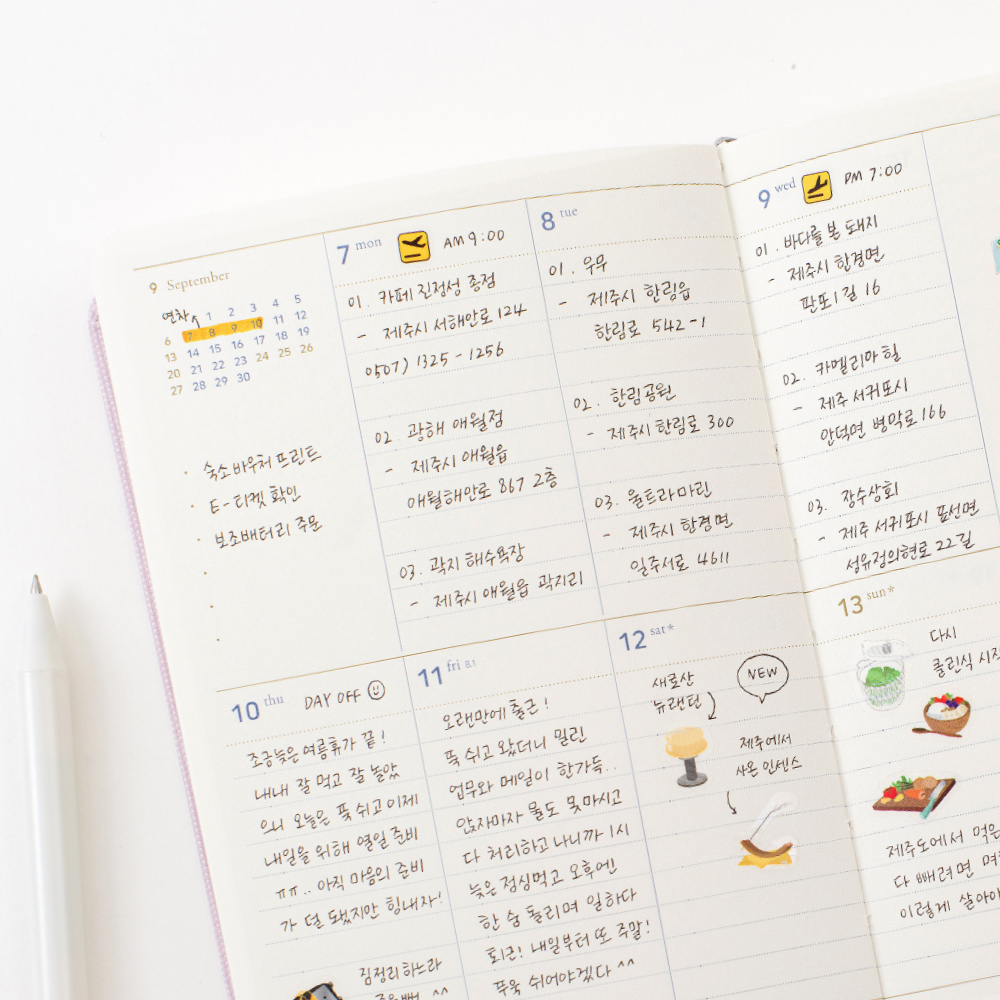 9 September
연차
1 2 3 4 5
6 7 8 9 10 11 12
13 14 15 16 17 18 19
20 21 22 23 24 25 26
27 28 29 30
· 숙소바우처 프린트
· E-티켓 확인
· 보조배터리 주문
·
·
·
7 mon AM 9:00
01. 카페 진정성 종점
- 제주시 서해안로 124
0507) 1325-1256
02. 광해 애월점
- 제주시 애월읍
애월해안로 867 2층
03. 곽지 해수욕장
- 제주시 애월읍 곽지리
8 tue
01. 우무
- 제주시 한림읍
한림로 542-1
02. 한림공원
- 제주시 한림로 300
03. 울트라마린
- 제주시 한경면
일주서로 4611
9 wed PM 7:00
01. 바다를 본 돼지
- 제주시 한경면
판포1길 16
02. 카멜리아 힐
- 제주 서귀포시
안덕면 병악로 166
03. 장수상회
- 제주 서귀포시 표선면
성유정의현로 22길
10 thu DAY OFF
조금늦은 여름휴가 끝!
내내 잘 먹고 잘 놀았
으니 오늘은 푹 쉬고 이제
내일을 위해 열일 준비
ㅠㅠ.. 아직 마음의 준비
가 덜 됐지만 힘내자!
짐정리하느라
^^
11 fri 8.1
오랜만에 출근!
푹 쉬고 왔더니 밀린
업무와 메일이 한가득..
앉자마자 물도 못마시고
다 처리하고 나니까 1시
늦은 점심먹고 오후엔
한 숨 돌리며 일하다
퇴근! 내일부터 또 주말!
푸욱 쉬어야겠다 ^^
12 sat*
새로산
뉴랜턴
NEW
제주에서
사온 인센스
13 sun*
다시
클린식 시작
제주도에서 먹은
다 빼려면
이렇게 살아야